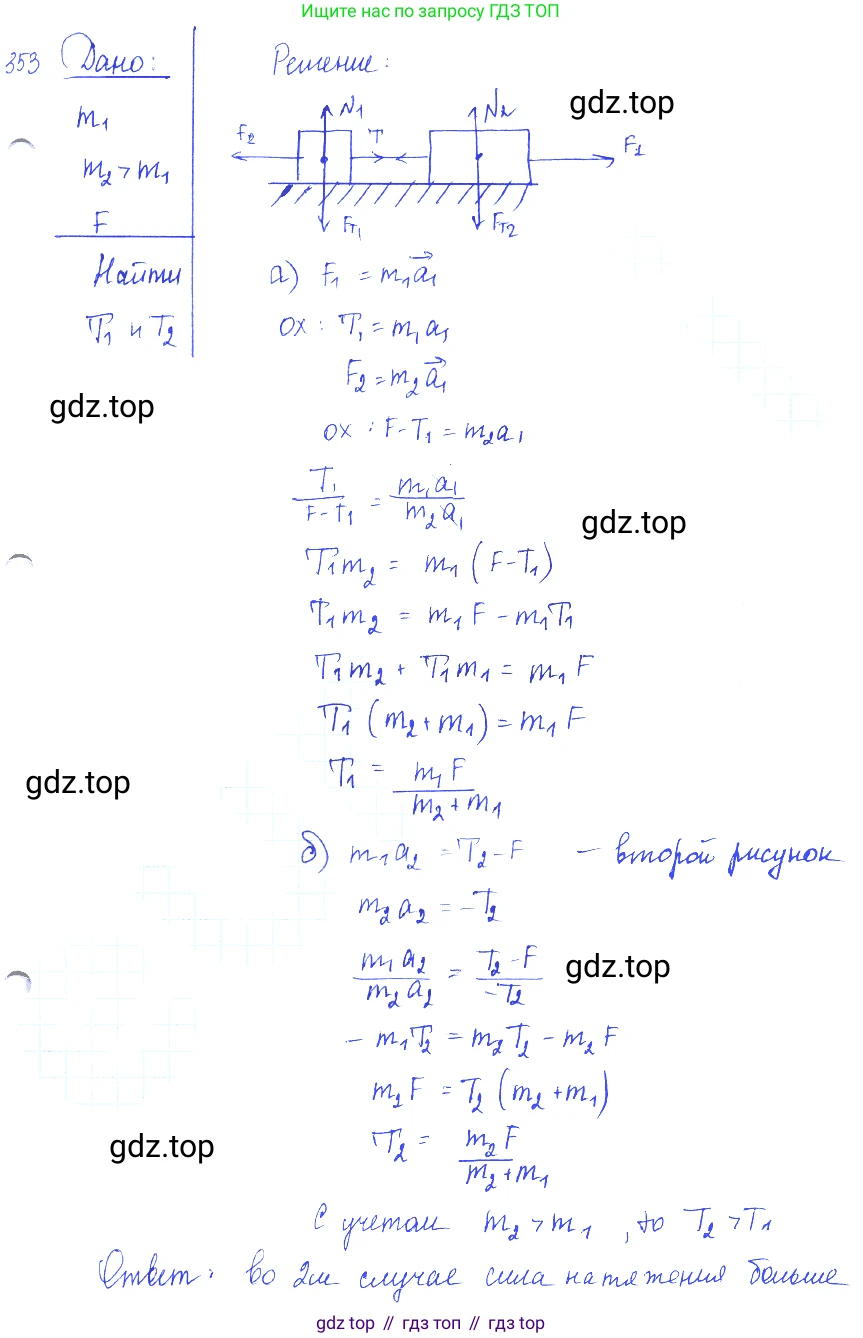 Ищите нас по запросу ГДЗ ТОП
353 Дано: Решение:
m₁
m₂ > m₁
F
Найти
T₁ и T₂
N₁ N₂ gdz.top
F₂ T F₁
Fт₁ Fт₂
а) F₁ = m₁a₁
ox: T₁ = m₁a₁
F₂ = m₂a₁
gdz.top
ox: F-T₁ = m₂a₁
T₁/(F-T₁) = m₁a₁/(m₂a₁)
gdz.top
T₁m₂ = m₁(F-T₁)
T₁m₂ = m₁F - m₁T₁
T₁m₂ + T₁m₁ = m₁F
T₁(m₂+m₁) = m₁F
gdz.top
T₁ = m₁F/(m₂+m₁)
б) m₁a₂ = T₂-F - второй рисунок
m₂a₂ = -T₂
m₁a₂/(m₂a₂) = (T₂-F)/(-T₂)
gdz.top
- m₁T₂ = m₂T₂ - m₂F
m₂F = T₂(m₂+m₁)
gdz.top
T₂ = m₂F/(m₂+m₁)
С учетом m₂ > m₁, то T₂ > T₁
Ответ: во 2м случае сила натяжения больше
gdz.top // гдз топ // gdz.top